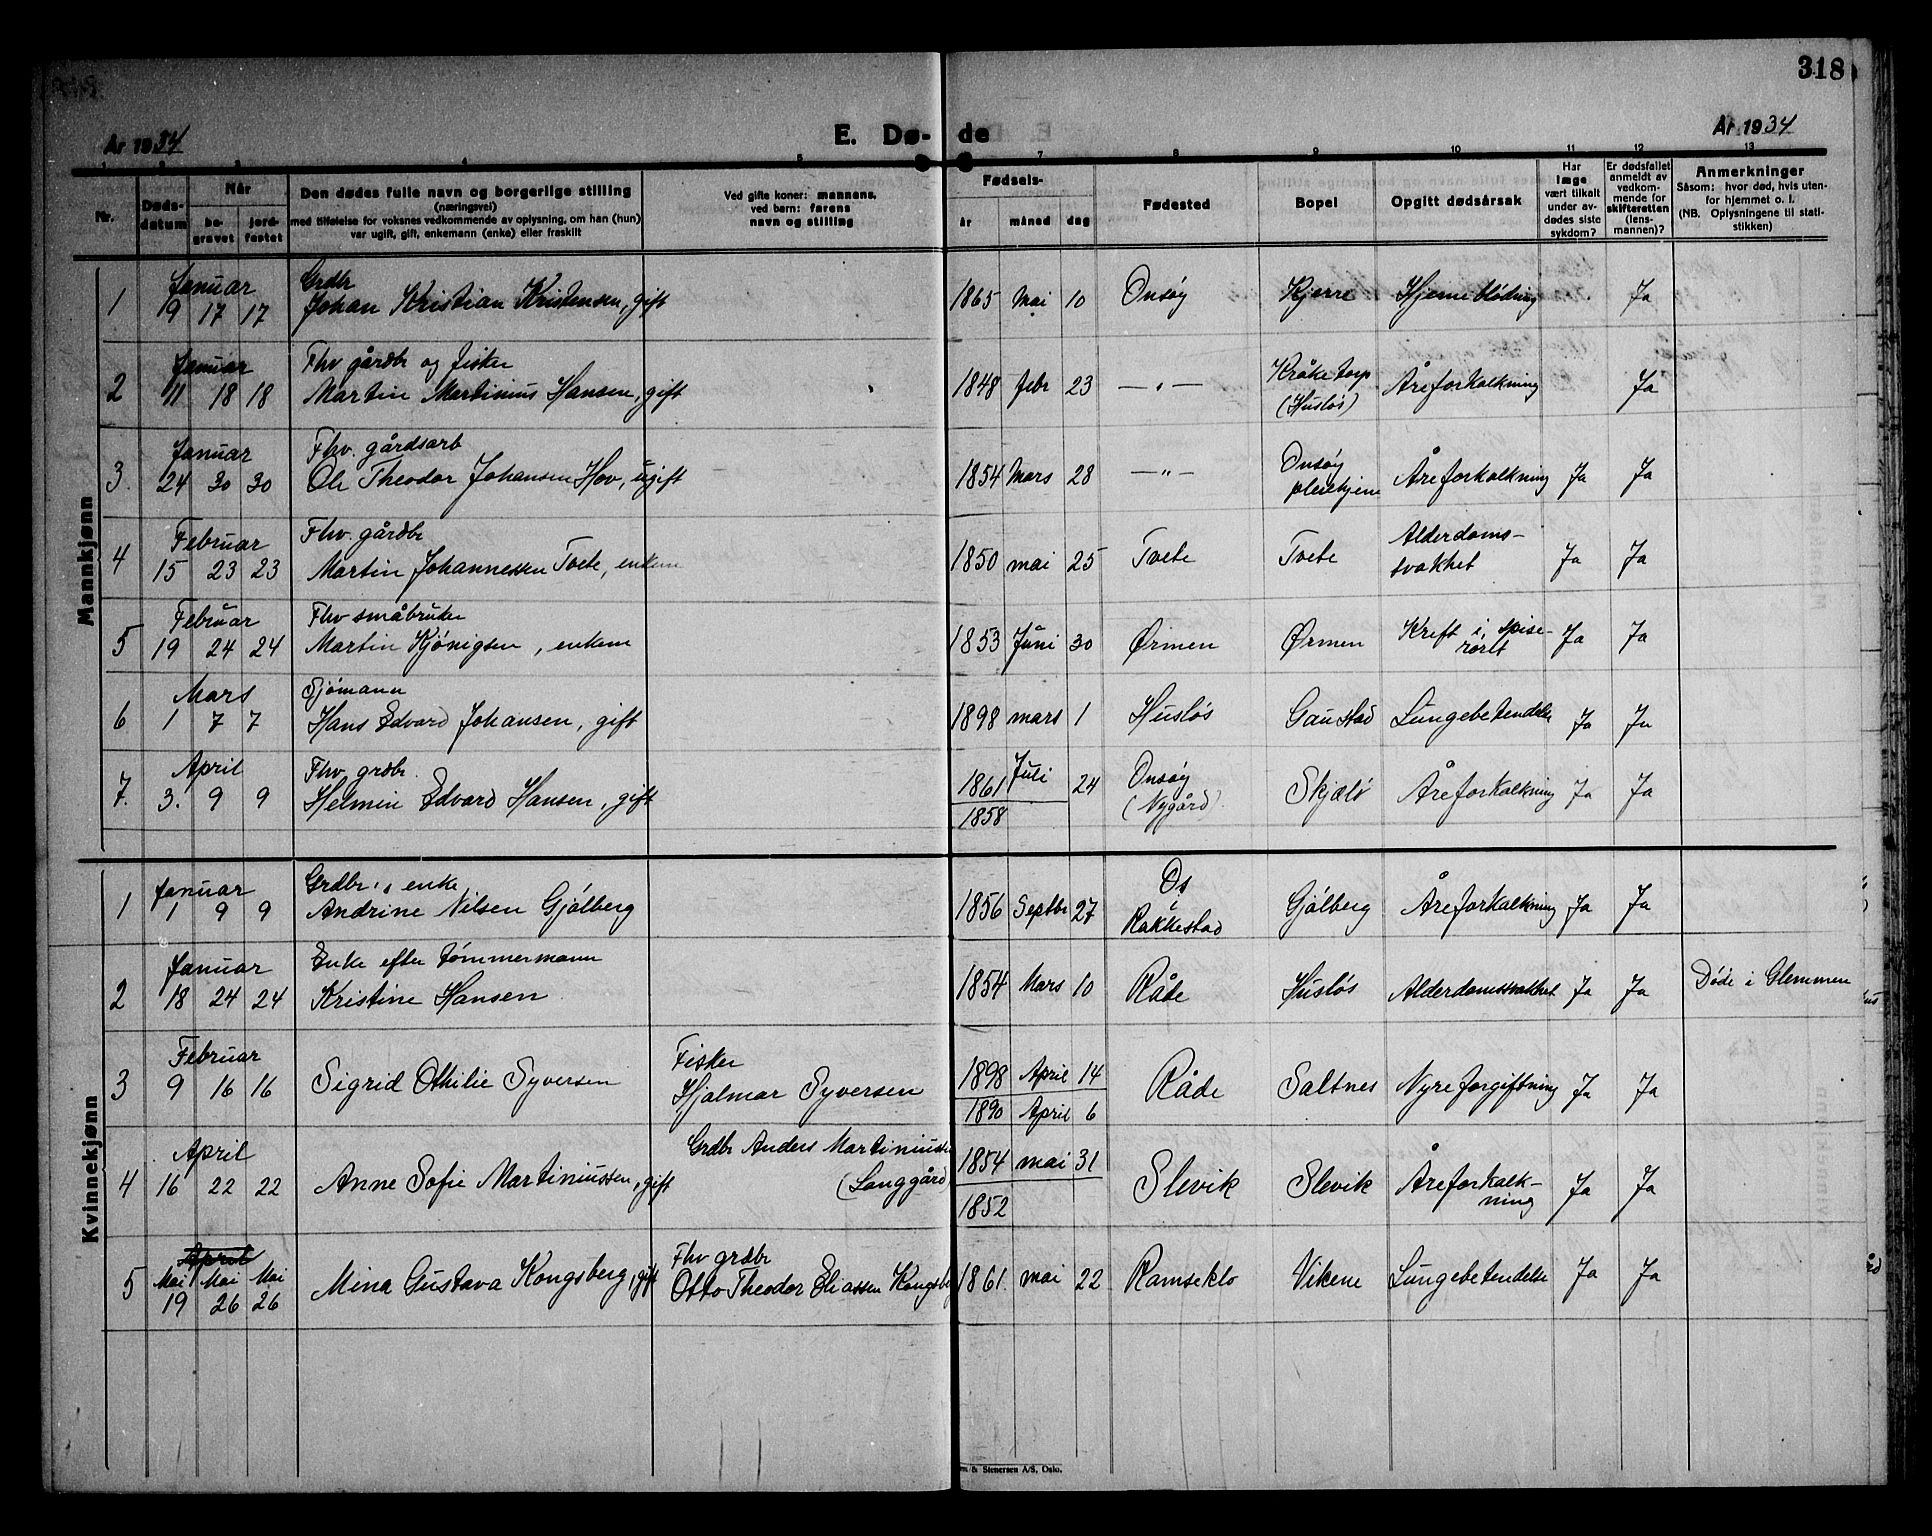 318
År 1934
E. Dø- de
År 1934
7 8 9 10 11 12 13
Nr.
Døds-
datum
Når
be-
gravet
jord-
festet
Den dødes fulle navn og borgerlige stilling
(næringsvei)
med tilføielse for voksnes vedkommende av oplysning, om han (hun)
var ugift, gift, enkemann (enke) eller fraskilt
Ved gifte koner: mannens,
ved barn: farens
navn og stilling
Fødsels-
år måned dag
Fødested
Bopel
Opgitt dødsårsak
Har
læge
vært tilkalt
under av-
dødes siste
sykdom?
Er dødsfallet
anmeldt av
vedkom-
mende for
skifteretten
(lens-
mannen)?
Anmerkninger
Såsom: hvor død, hvis uten-
for hjemmet o. l.
(NB. Oplysningene til stati-
stikken)
Mannkjønn
Januar Grdbr
1 9 17 17 Johan Kristian Kristensen, gift 1865 Mai 10 Onsøy Kjerre Hjerneblødning Ja
Januar Fhv gårdbr og fisker
2 11 18 18 Martin Martinius Hansen, gift 1848 febr 23 — „ — Kråketorp (Husløs) Åreforkalkning Ja
Januar Fhv. gårdsarb
3. 24 30 30 Ole Theodor Johansen Hov, ugift 1854 Mars 28 — „ — Onsøy pleiehjem Åreforkalkning Ja Ja
Februar Fhv. gårdbr
4 15 23 23 Martin Johannessen Tvete, enkem 1850 mai 25 Tvete Tvete Alderdoms- svakhet Ja Ja
Februar Fhv småbruker
5 19 24 24 Martin Kjönigsen, enkem 1853 Juni 30 Ørmen Ørmen Kreft i spise- rørlt Ja Ja
Mars Sjømann
6 1 7 7 Hans Edvard Johansen, gift 1898 mars 1 Husløs Gaustad Lungebetendelse Ja Ja
April Fhv. grdbr.
7. 3. 9 9 Helmin Edvard Hansen, gift 1861 Juli 24 Onsøy (Nygård) Skjælø Åreforkalkning Ja Ja
1858
Kvinnekjønn
Januar Grdbr.s enke
1 1 9 9 Andrine Nilsen Gjølberg 1856 Septbr 27 Os, Rakkestad Gjølberg Åreforkalkning Ja Ja
Januar Enke efter tømmermann
2 18 24 24 Kristine Hansen 1854 Mars 10 Råde Husløs Alderdomssvakhet Ja Ja Døde i Glemmen
Februar Fisker
3 9 16 16 Sigrid Othilie Syversen Hjalmar Syversen 1898 April 14 Råde Saltnes Nyreforgiftning Ja Ja
1890 April 6
April Grdbr Anders Martiniussen
4 16 22 22 Anne Sofie Martiniussen, gift (Langgård) 1854 mai 31 Slevik Slevik Åreforkalk- ning Ja Ja
1852
April Fhv grdbr
5 Mai 19 Mai 26 Mai 26 Mina Gustava Kongsberg, gift Otto Theodor Eliassen Kongsberg 1861. mai 22 Ramseklo Vikene Lungebetendelse Ja Ja
& Stenersen A/S, Oslo.